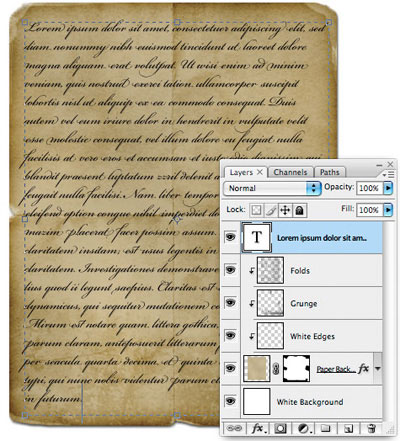 Lorem ipsum dolor sit amet, consectetuer adipiscing elit, sed
diam nonummy nibh euismod tincidunt ut laoreet dolore
magna aliquam erat volutpat. Ut wisi enim ad minim
veniam, quis nostrud exerci tation ullamcorper suscipit
lobortis nisl ut aliquip ex ea commodo consequat. Duis
autem vel eum iriure dolor in hendrerit in vulputate velit
esse molestie consequat, vel illum dolore eu feugiat nulla
facilisis at vero eros et accumsan et iusto odio dignissim qui
blandit praesent luptatum zzril delenit a
feugait nulla facilisi. Nam liber tempor
eleifend option congue nihil imperdiet do
mazim placerat facer possim assum.
claritatem insitam; est usus legentis in
claritatem. Investigationes demonstrave
lius quod ii legunt saepius. Claritas est
dynamicus, qui sequitur mutationem c
Mirum est notare quam littera gothica,
parum claram, anteposuerit litterarum
per seacula quarta decima et quinta
typi, qui nunc nobis videntur parum c
in futurum.
Layers × Channels Paths
Normal Opacity: 100%
Lock: Fill: 100%
T Lorem ipsum dolor sit am..
Folds
Grunge
White Edges
Paper Back... fx
White Background
fx.